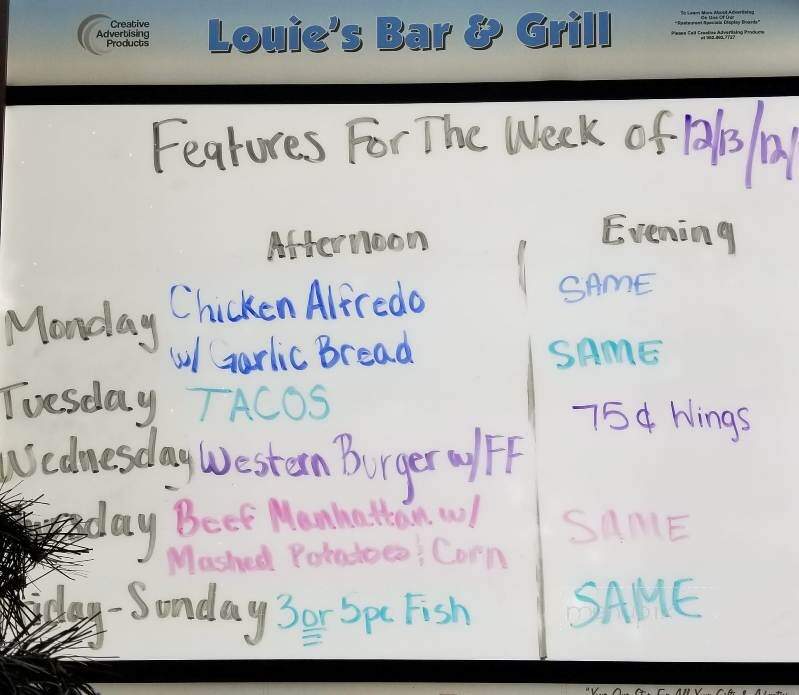 Creative
Advertising
Products
Louie's Bar & Grill
To Learn More About Advertising
On One Of Our
"Restaurant Specials Display Boards"
Please Call Creative Advertising Products
Features For The Week of 12/13/12/
Afternoon Evening
Monday Chicken Alfredo SAME
w/ Garlic Bread
Tuesday TACOS SAME
Wednesday Western Burger w/FF 75¢ Wings
day Beef Manhattan w/ SAME
Mashed Potatoes & Corn
iday-Sunday 3 or 5pc Fish SAME